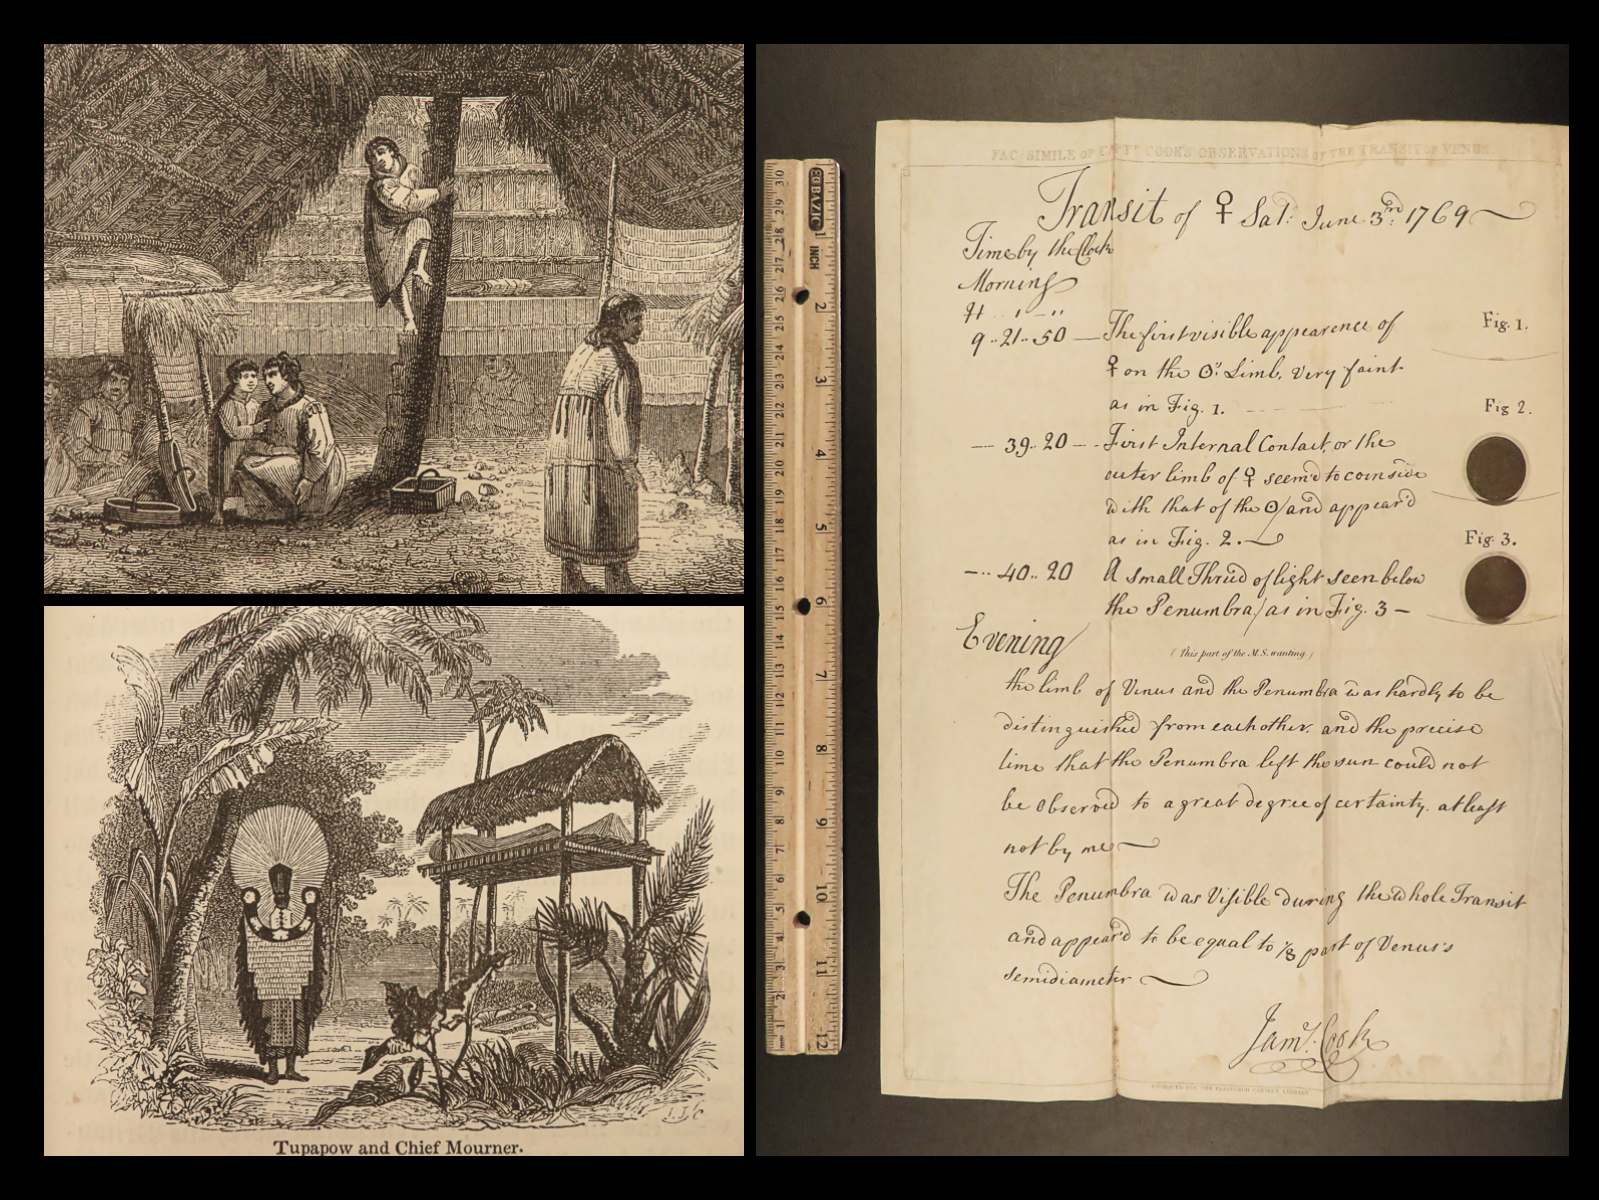 Tupapow and Chief Mourner.
BAZIC
INCH
1
2
3
4
5
6
7
8
9
10
11
12
30
29
28
27
26
25
24
23
22
21
20
19
18
17
16
15
14
13
12
11
10
9
8
7
6
5
4
3
2
1
FAC-SIMILE OF CAPTN. COOK'S OBSERVATIONS OF THE TRANSIT OF VENUS
Transit of ♀ Sat: June 3rd: 1769
Time by the Clock
Morning
H ' "
9..21..50 — The first visible appearence of
♀ on the ☉s Limb, Very faint
as in Fig. 1.
Fig. 1.
— 39..20 — First Internal Contact, or the
outer limb of ♀ seem'd to coinside
with that of the ☉ and appear'd
as in Fig. 2.
Fig 2.
— 40..20 A Small Thrid of light seen below
the Penumbra as in Fig. 3 —
Fig. 3.
Evening
(This part of the M.S. wanting.)
the limb of Venus and the Penumbra was hardly to be
distinguished from each other. and the precise
time that the Penumbra left the sun could not
be Observed to a great degree of certainty. at least
not by me
The Penumbra was Visible during the whole Transit
and appear'd to be equal to 1/8 part of Venus's
semidiameter
Jams. Cook
ENGRAVED FOR THE EDINBURGH CABINET LIBRARY